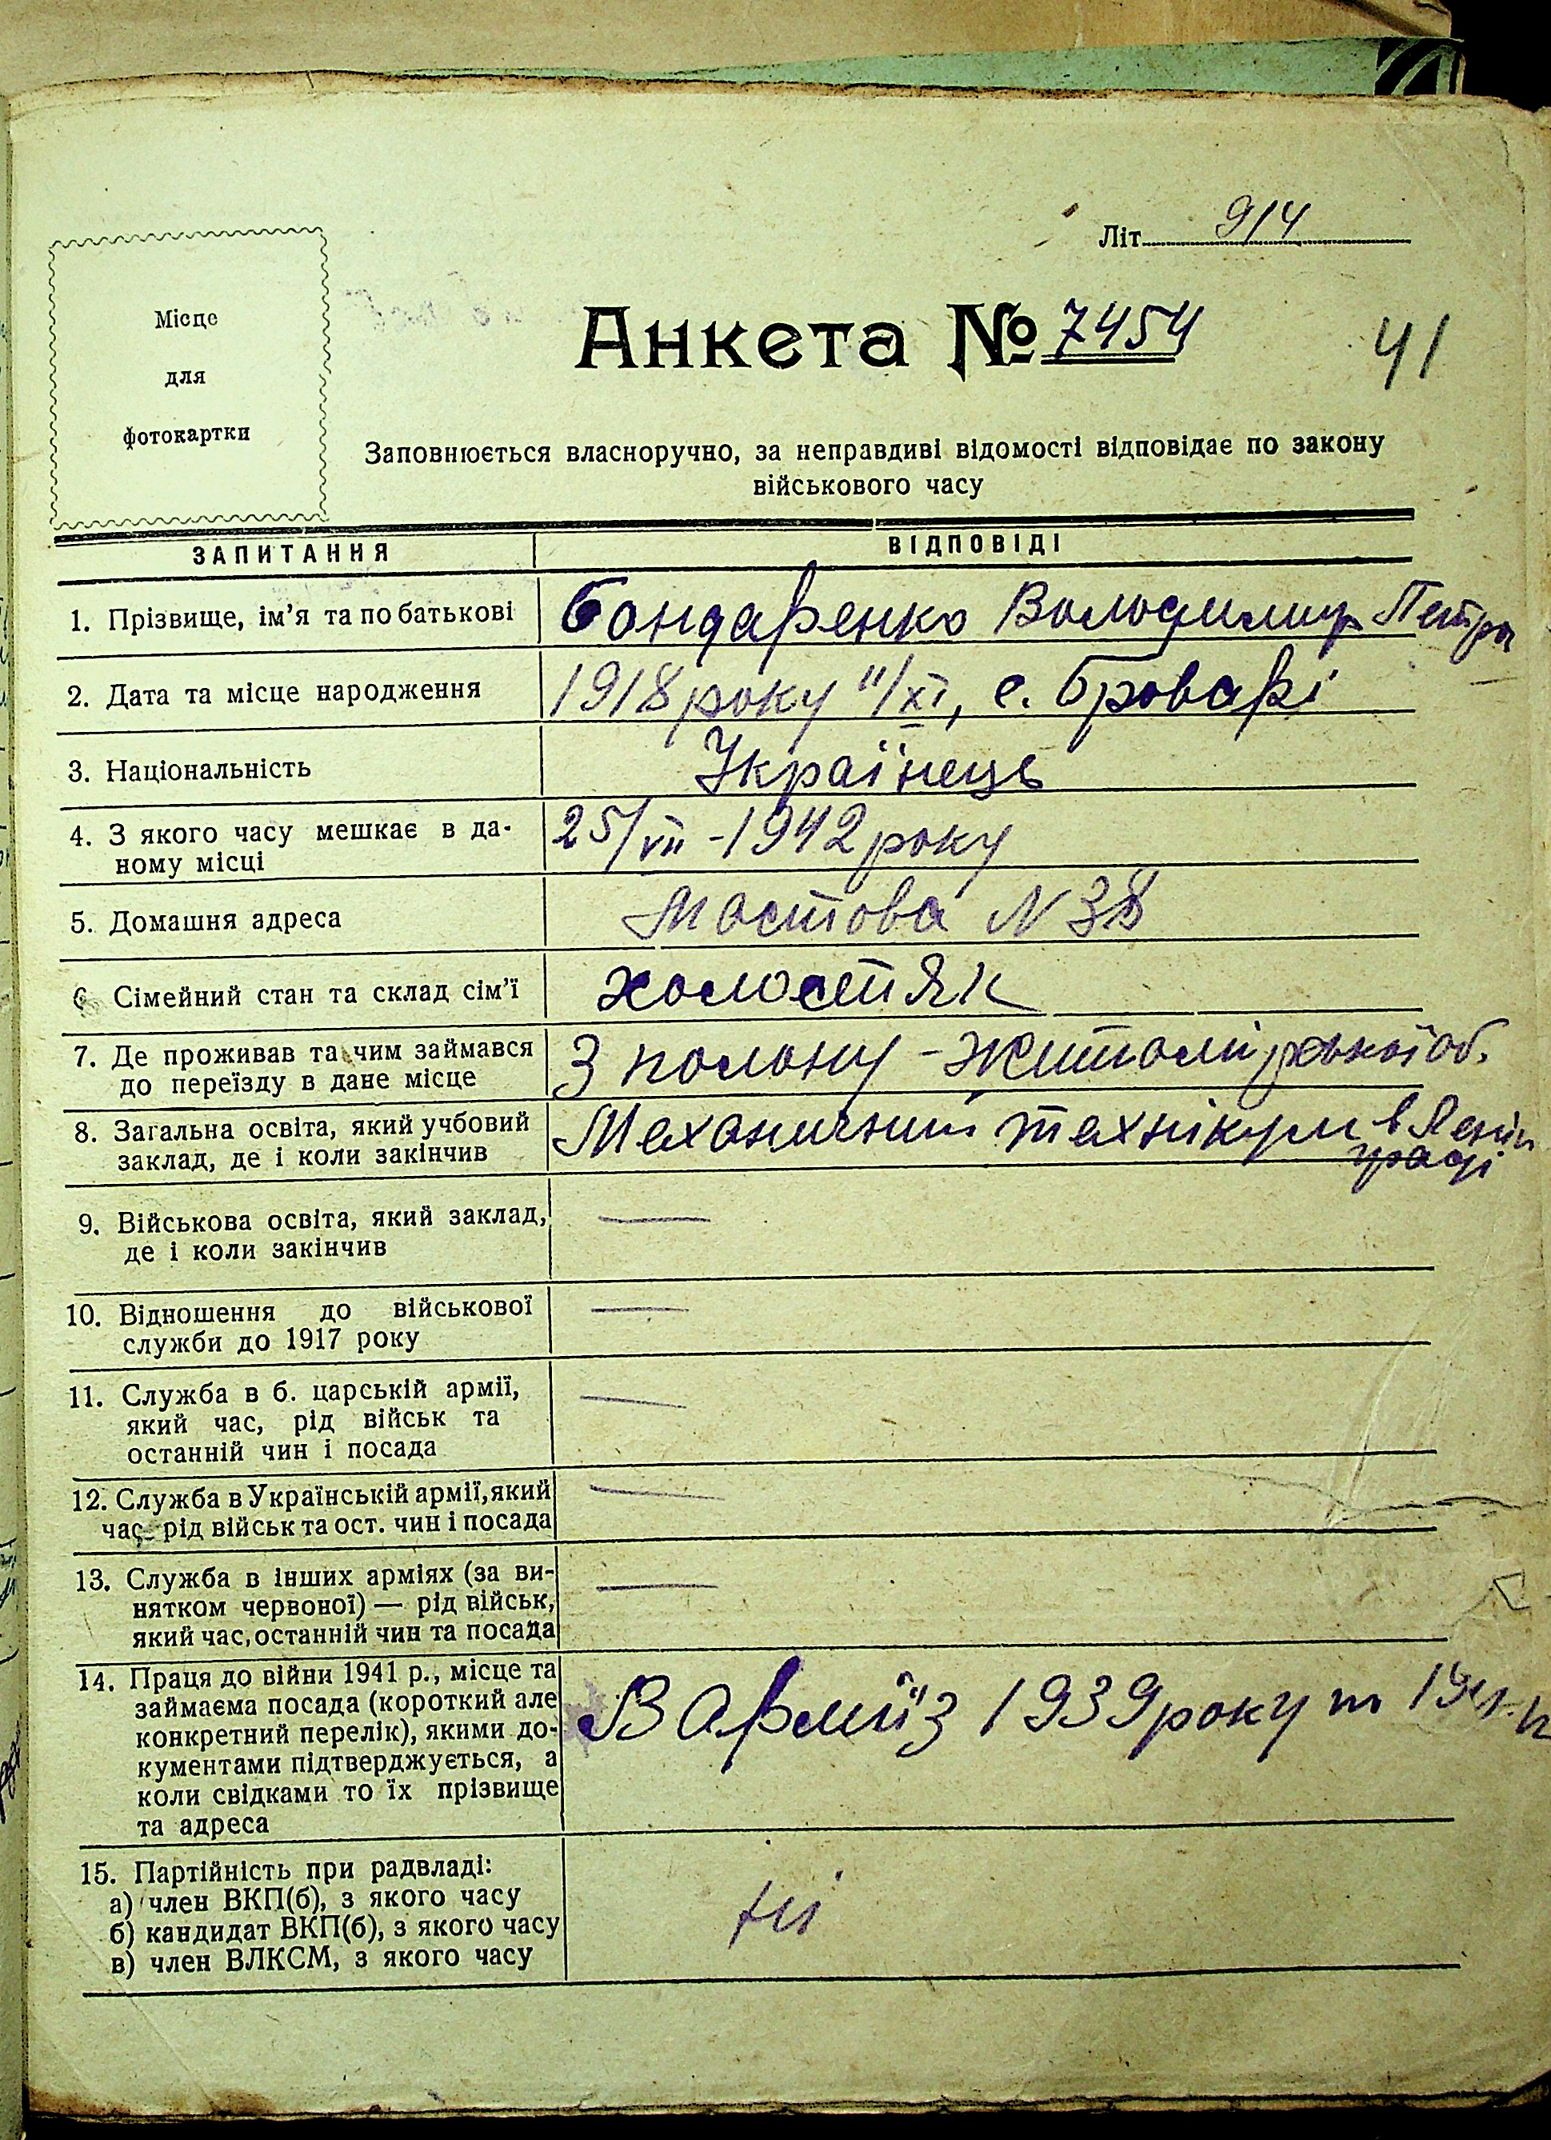 Літ 914
Місце
для
фотокартки
Анкета № 7454
41
Заповнюється власноручно, за неправдиві відомості відповідає по закону
військового часу
ЗАПИТАННЯ ВІДПОВІДІ
1. Прізвище, ім'я та по батькові Бондаренко Володимир Петр
2. Дата та місце народження 1918 року 11/XI, с. Броварі
3. Національність Українець
4. З якого часу мешкає в да-
ному місці 25/VII - 1942 року
5. Домашня адреса Мостова N 38
6 Сімейний стан та склад сім'ї холостяк
7. Де проживав та чим займався
до переїзду в дане місце З полону - Житомірської об.
8. Загальна освіта, який учбовий
заклад, де і коли закінчив Механичний технікум в Ленін
граді
9. Військова освіта, який заклад, —
де і коли закінчив
10. Відношення до військової —
служби до 1917 року
11. Служба в б. царській армії, —
який час, рід військ та
останній чин і посада
12. Служба в Українській армії, який —
час, рід військ та ост. чин і посада
13. Служба в інших арміях (за ви- —
нятком червоної) — рід військ,
який час, останній чин та посада
14. Праця до війни 1941 р., місце та
займаєма посада (короткий але
конкретний перелік), якими до- В Армії з 1939 року
кументами підтверджується, а
коли свідками то їх прізвище
та адреса
15. Партійність при радвладі:
а) член ВКП(б), з якого часу
б) кандидат ВКП(б), з якого часу ні
в) член ВЛКСМ, з якого часу